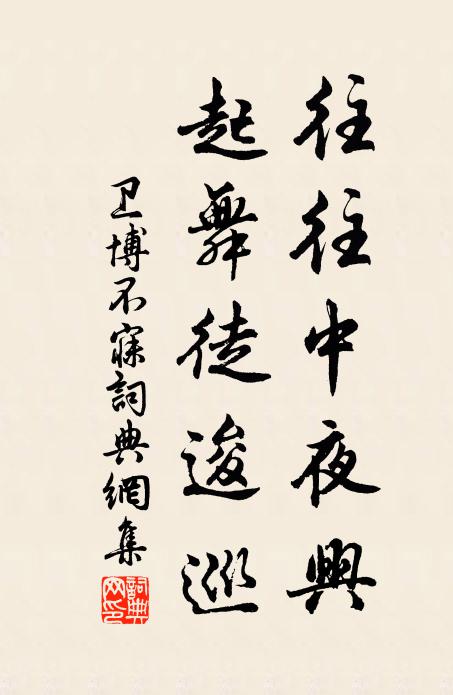 往往中夜興
起舞徒逡巡
卫博不寐詞典網集
詞典网印